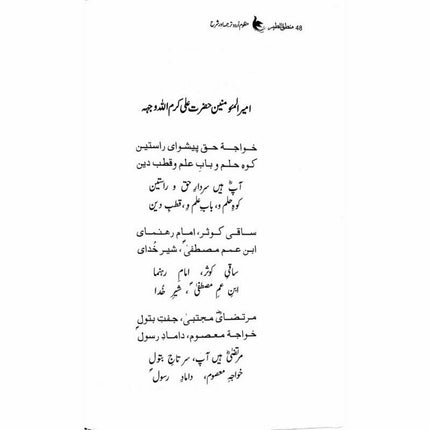 48 منطق الطیر منظوم اردو ترجمہ اور شرح
امیر المؤمنین حضرت علی کرم اللہ وجہہ
خواجۂ حق پیشوای راستین
کوه حلم و باب علم و قطب دین
آپؓ ہیں سردارِ حق و راستین
کوہِ حلم و، بابِ علم و، قطبِ دین
ساقی کوثر، امام رهنمای
ابن عم مصطفیٰؐ، شیر خدای
ساقیِ کوثر، امامِ رہنما
ابنِ عمِ مصطفیٰؐ، شیرِ خدا
مرتضایؓ مجتبیٰ، جفتِ بتولؓ
خواجۂ معصوم، دامادِ رسولؐ
مرتضیٰؓ ہیں آپ، سرتاجِ بتول
خواجہ معصوم، دامادِ رسولؐ